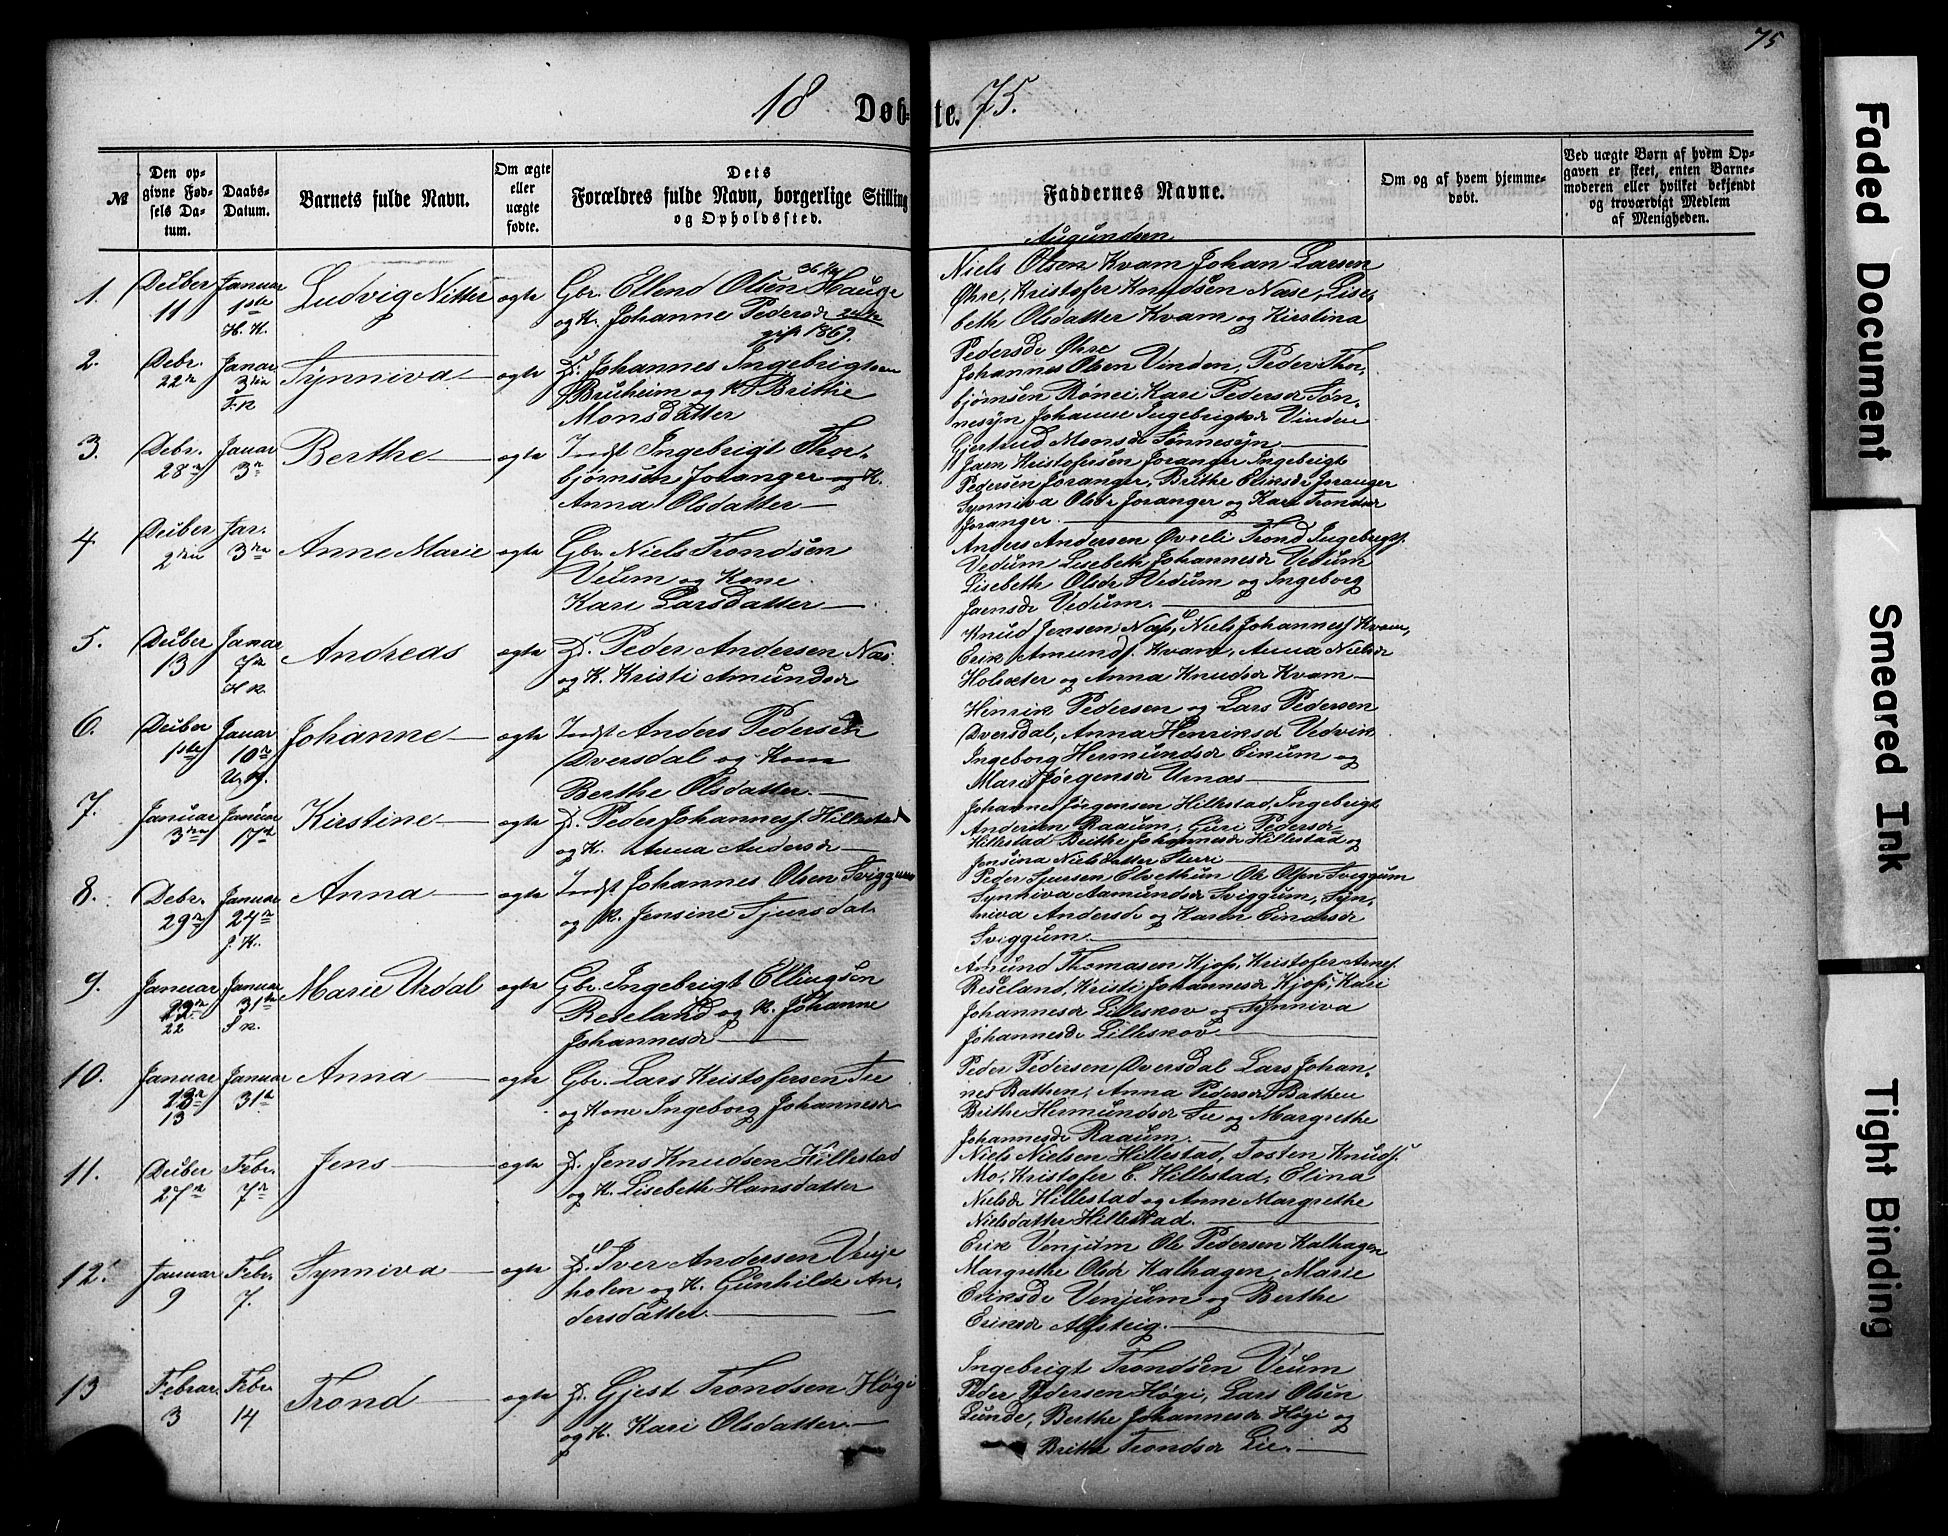 75
18 Døbte. 75.
№
Den opgivne Fødsels Datum.
Daabs-Datum.
Barnets fulde Navn.
Om ægte eller uægte fødte.
Dets Forældres fulde Navn, borgerlige Stilling og Opholdssted.
Faddernes Navne.
Om og af hvem hjemmedøbt.
Ved uægte Børn af hvem Opgaven er skeet, enten Barnemoderen eller hvilket bekjendt og troværdigt Medlem af Menigheden.
1. Decber 11 Januar 1ste H. K. Ludvig Nitter ægte
Gbr. Ellend Olsen Hauge
og K. Johanne Pedersdr
gift 1869.
Augundsen
Niels Olsen Kvam Johan Larsen
Øhre, Kristofer Knudsen Næse, Lise-
beth Olsdatter Kvam og Kirstina
Pedersdr Øhre
2. Debr. 22n Janar 3die F. K Synniva ægte
Johannes Ingebrigtsen
Bruheim og K Brithe
Monsdatter
Johannes Olsen Vinden, Peder Thor-
bjørnsen Rønei, Kari Pedersdr Søn-
nesyn, Johanne Ingebrigtsdr Vinden
Gjertrud Monsdr Sønnesyn
3. Debr. 28n Januar 3n Berthe ægte
Indst Ingebrigt Thor-
bjørnsen Joranger og K.
Anna Olsdatter
Jaen Kristofersen Joranger Ingebrigt
Pedersen Joranger, Brithe Eriksdr Joranger
Synniva Olsdr Joranger og Kari Trondsdr
Joranger.
4. Decber 2den Jar. 3die Anne Marie ægte
Gbr. Niels Trondsen
Velum og Kone
Kari Larsdatter
Anders Andersen Øvreli Trond Ingebrigts.
Vedum Lisebeth Johannesdr Vedum
Lisebeth Olsdr Vedum og Ingeborg
Jaensdr Vedum.
5. Decber 13 Janar 7n H K. Andreas ægte
D. Peder Andersen Næs
og K. Kristi Amundsdr
Knud Jensen Næss, Niels Johanness. Kvam,
Erik Amunds. Kvam, Anna Nielsdr
Holsæter og Anna Knudsdr Kvam
6. Decber 1ste Januar 10n Johanne ægte
Indst Anders Pedersen
Dversdal og Kone
Berthe Olsdatter.
Henrik Pedersen og Lars Pedersen
Dversdal, Anna Henriksdr Vedvik
Ingeborg Hermundsdr Einum og
Marie Jørgensdr Urnæs
7. Januar 3die Januar 17n Kirstine ægte
D. Peder Johanness. Hillestad
og K. Anna Andersdr
Johannes Jørgensen Hillestad, Ingebrigt
Andersen Raaum, Guri Pedersdr
Hillestad Brithe Johannesdr Hillestad og
Jensina Nielsdatter Sterri
8. Debr. 29n Januar 24n J. K. Anna ægte
Indst Johannes Olsen Sviggum
og K. Jensine Sjursdat.
Peder Sjursen Elvethun Ole Olsen Sviggum
Synniva Aamundsdr Sviggum, Syn-
niva Andersdr og Karen Einarsdr
Sviggum.
9. Januar 22 Januar 31te S K. Marie Urdal ægte
Gbr. Ingebrigt Ellingsen
Reseland og K. Johanne
Johannesdr
Amund Thomasen Kjøs, Kristofer Arnes.
Reseland, Kristi Johannesdr Kjøs, Kari
Johannesdr Lilleskov og Synniva
Johannesdr Lilleskov
10. Januar 13 Januar 31n Anna ægte
Gbr. Lars Kristofersen Fre
og Kone Ingeborg Johannesdr
Peder Pedersen Dversdal Lars Johan-
nes Bathen, Anna Pedersdr Bathen
Brithe Hermundsdr Fre og Margrethe
Johannesdr Raaum.
11. Decber 27n Febr. 7n Jens ægte
D. Jens Knudsen Hillestad
og K. Lisebeth Hansdatter
Niels Nielsen Hillestad, Tosten Knuds.
Mo, Kristofer E. Hillestad, Elina
Nielsdr Hillestad og Anne Margrethe
Nielsdatter Hillestad.
12. Januar 9 Febr. 7. Synniva ægte
D. Iver Andersen Venje
holen og K. Gunhilde An-
dersdatter.
Erik Venjum Ole Pedersen Kalhagen
Margrethe Olsdr Kalhagen, Marie
Eriksdr Venjum og Berthe
Eriksdr Alsteig.
13 Febrar. 3 Febr 14 Trond ægte
D. Gjest Trondsen Høgi
og K. Kari Olsdatter.
Ingebrigt Trondsen Veum
Peder Pedersen Høgi, Lars Olsen
Lunde, Berthe Johannesdr Høgi og
Brithe Trondsdr Lie.
Faded Document
Smeared Ink
Tight Binding